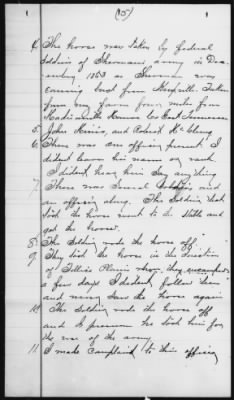 (5)
4 The horse was taken by federal
soldiers of Shermans army in Dec-
ember 1863 as Sherman was
coming back from Knoxville. Taken
from my farm four miles from
Madisonville Monroe Co East Tennessee
5. John Kinis, and Robert McClung
6. There was one officer present I
didnt learn his name or rank
I didnt hear him Say anything
7 There was Several soldiers and
an officer along. The Soldiers that
took the horse went to the Stable and
got the horse.
8. The Soldiers rode the horse off
9. They took the horse in the direction
of Tellico Plains where they encamped
a few days I didnt follow them
and never saw the horse again
10 The Soldiers rode the horse off
and I presume he took him for
the use of the army
11. I made complaint to this officer